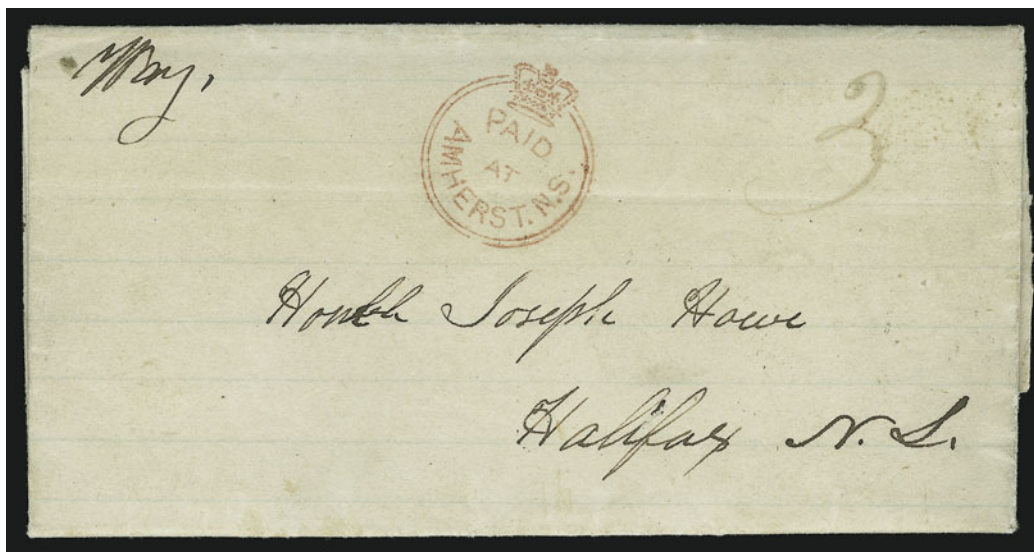 Way,
PAID
AT
AMHERST. N.S.
3
Honble Joseph Howe
Halifax N. S.